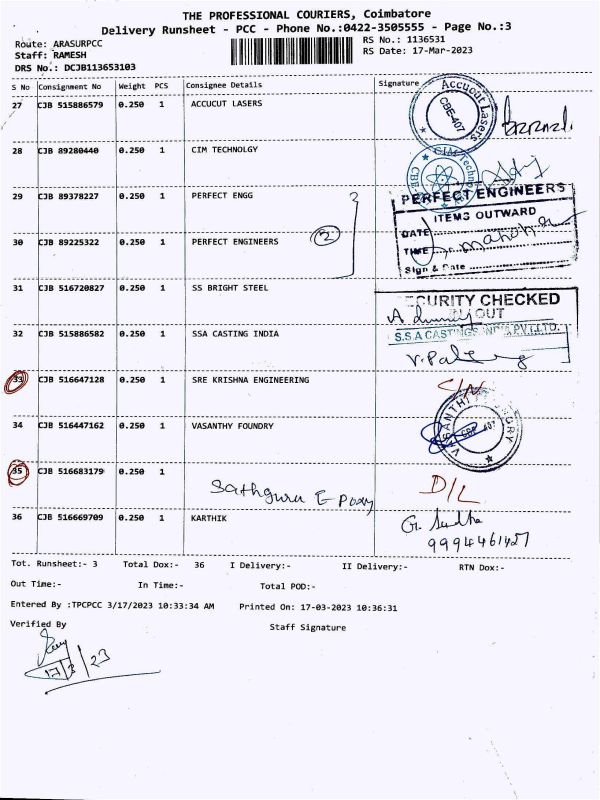 THE PROFESSIONAL COURIERS, Coimbatore
Delivery Runsheet - PCC - Phone No.:0422-3505555 - Page No.:3
Route: ARASURPCC
RS No.: 1136531
Staff: RAMESH
RS Date: 17-Mar-2023
DRS No.: DCJB113653103
S No Consignment No Weight PCS Consignee Details Signature
27 CJB 515886579 0.250 1 ACCUCUT LASERS
Accucut Lasers CBE-407
28 CJB 89280440 0.250 1 CIM TECHNOLGY
29 CJB 89378227 0.250 1 PERFECT ENGG
PERFECT ENGINEERS
ITEMS OUTWARD
30 CJB 89225322 0.250 1 PERFECT ENGINEERS 2
DATE
TIME
Sign & Date
31 CJB 516720827 0.250 1 SS BRIGHT STEEL
SECURITY CHECKED
IN OUT
32 CJB 515886582 0.250 1 SSA CASTING INDIA
S.S.A CASTINGS INDIA PVT.LTD.
33 CJB 516647128 0.250 1 SRE KRISHNA ENGINEERING C/N
34 CJB 516447162 0.250 1 VASANTHY FOUNDRY
VASANTHI FOUNDRY CBE-407
35 CJB 516683179 0.250 1
Sathguru E Poxy D/L
36 CJB 516669709 0.250 1 KARTHIK
G. Sudha
9994461427
Tot. Runsheet:- 3 Total Dox:- 36 I Delivery:- II Delivery:- RTN Dox:-
Out Time:- In Time:- Total POD:-
Entered By :TPCPCC 3/17/2023 10:33:34 AM Printed On: 17-03-2023 10:36:31
Verified By Staff Signature
17/3/23